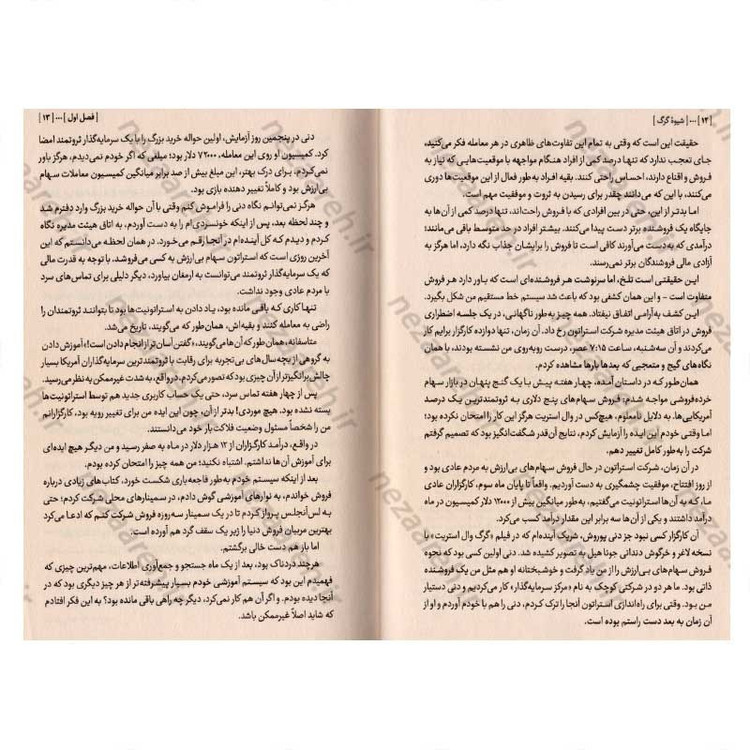 | ۱۲ | ... | شیوهٔ گرگ |
حقیقت این است که وقتی به تمام این تفاوت‌های ظاهری در هر معامله فکر می‌کنید،
جـای تعجـب نـدارد کـه تنهـا درصـد کمـی از افـراد هنـگام مواجهه با موقعیت‌هایی که نیاز به
فروش و اقناع دارند، احساس راحتی کنند. بقیه افراد به‌طور فعال از این موقعیت‌ها دوری
می‌کنند، با این که می‌دانند چقدر برای رسیدن به ثروت و موفقیت مهم است.
اما بدتر از این، حتی در بین افرادی که با فروش راحت‌اند، تنها درصد کمی از آن‌ها به
جایگاه یک فروشنده برتر دست پیدا می‌کنند. بیشتر افراد در حد متوسط باقی می‌مانند؛
درآمدی که به‌دست می‌آورند کافی است تا فروش را برایشان جذاب نگه دارد، اما هرگز به
آزادی مالی فروشندگان برتر نمی‌رسند.
ایـن حقیقتـی اسـت تلـخ، امـا سرنوشـت هـر فروشنده‌ای است که باور دارد هر فروش
متفاوت است - و این همان کشفی بود که باعث شد سیستم خط مستقیم من شکل بگیرد.
ایـن کشـف به‌آرامـی اتفـاق نیفتاد. همه چیز به‌طور ناگهانی، در یک جلسه اضطراری
فروش در اتاق هیئت مدیره شرکت استراتون رخ داد. آن زمان، تنها دوازده کارگزار برایم کار
می‌کردند و آن سه‌شنبه، ساعت ۷:۱۵ عصر، درست روبه‌روی من نشسته بودند، با همان
نگاه‌های گیج و متعجبی که بعدها بارها مشاهده کردم.
همان‌طور کـه در داستان آمده، چهار هفته پیش با یک گنج پنهان در بازار سهام
خرده‌فروشی مواجه شدم: فروش سهام‌های پنج دلاری به ثروتمندترین یک درصد
آمریکایی‌ها. به دلایلی نامعلوم، هیچ‌کس در وال استریت هرگز این کار را امتحان نکرده بود؛
اما وقتی خودم این ایده را آزمایش کردم، نتایج آن‌قدر شگفت‌انگیز بود که تصمیم گرفتم
شرکت را به‌طور کامل تغییر دهم.
در آن زمان، شرکت استراتون در حال فروش سهام‌های بی‌ارزش به مردم عادی بود و
از روز افتتاح، موفقیت چشمگیری به دست آوردیم. واقعاً تا پایان ماه سوم، آدم‌های عادی
مـا، کـه بـه آن‌ها استراتونیت می‌گفتیم، به‌طور میانگین بیش از ۱۲۰۰۰ دلار کمیسیون در ماه
درآمد داشتند و یکی از آن‌ها سه برابر این مقدار درآمد کسب می‌کرد.
آن کارگزار کسی نبود جز دنی پوروش، شریک آینده‌ام که در فیلم «گرگ وال استریت» با
نسخه لاغر و خرگوش دندانی جونا هیل به تصویر کشیده شد. دنی اولین کسی بود که نحوه
فروش سهام‌های بی‌ارزش را از من یاد گرفت و خوشبختانه او هم مثل من یک فروشنده
ذاتی بود. ما هر دو در شرکتی کوچک به نام «مرکز سرمایه‌گذار» کار می‌کردیم و دنی دستیار
مـن بـود. وقتی برای راه‌اندازی استراتون آنجا را ترک کردم، دنی را هم با خودم آوردم و او از
آن زمان به بعد دست راستم بوده است.
| فصل اول | ... | ۱۳ |
دنی در پنجمین روز آزمایش، اولین حواله خرید بزرگ را با یک سرمایه‌گذار ثروتمند امضا
کرد. کمیسیون او روی این معامله، ۷۲۰۰۰ دلار بود؛ مبلغی که اگر خودم نمی‌دیدم، هرگز باور
نمی‌کـردم. برای درک بهتر، این مبلغ بیش از صد برابر میانگین کمیسیون معاملات سهام
بی‌ارزش بود و کاملاً تغییر دهنده بازی بود.
هرگز نمی‌توانـم نگاه دنی را فراموش کنم وقتی با آن حواله خرید بزرگ وارد دفترم شد
و چند لحظه بعد، پس از اینکه خونسردی‌ام را به دست آوردم، به اتاق هیئت مدیره نگاه
کـردم و دیـدم کـه کل آینده‌ام در آنجا رقـم می‌خورد. در همان لحظه می‌دانستم که این
آخرین روزی است که استراتون سهام بی‌ارزش به کسی می‌فروشد. با توجه به قدرت مالی
که یک سرمایه‌گذار ثروتمند می‌توانست به ارمغان بیاورد، دیگر دلیلی برای تماس‌های سرد
با مردم عادی وجود نداشت.
تنهـا کاری کـه باقـی مانده بود، یاد دادن به استراتونیت‌ها بود تا بتوانند ثروتمندان را
راضی به معامله کنند و بقیه‌اش، همان‌طور که می‌گویند، تاریخ می‌شد.
متاسفانه، همان‌طور که آن‌ها می‌گویند، «گفتن آسان‌تر از انجام دادن است»! آموزش دادن
به گروهی از بچه سال‌های بی‌تجربه برای رقابت با ثروتمندترین سرمایه‌گذاران آمریکا بسیار
چالش‌برانگیزتر از آن چیزی بود که تصور می‌کردم. در واقع، به شدت غیرممکن به نظر می‌رسید.
پس از چهار هفته تماس سرد، حتی یک حساب کاربری جدید هم توسط استراتونیت‌ها
بسته نشده بود. هیچ موردی! بدتر از آن، چون این ایده من برای تغییر رویه بود، کارگزارانم
من را شخصاً مسئول وضعیت فلاکت‌بار خود می‌دانستند.
در واقـع، درآمد کارگزاران از ۱۲ هـزار دلار در ماه به صفر رسید و من دیگر هیچ ایده‌ای
برای آموزش آن‌ها نداشتم. اشتباه نکنید؛ من همه چیز را امتحان کرده بودم.
بعد از اینکه سیستم خودم به‌طور فاجعه‌باری شکست خورد، کتاب‌های زیادی درباره
فروش خواندم، به نوارهای آموزشی گوش دادم، در سمینارهای محلی شرکت کردم؛ حتی
بـه لـس‌آنجلـس پـرواز کـردم تا در یک سمینار سه‌روزه فروش شرکت کنم که ادعا می‌کرد
بهترین مربیان فروش دنیا را زیر یک سقف گرد هم آورده است.
اما باز هم دست خالی برگشتم.
هرچند دردناک بود، بعد از یک ماه جستجو و جمع‌آوری اطلاعات، مهم‌ترین چیزی که
فهمیدم این بود که سیستم آموزشی خودم بسیار پیشرفته‌تر از هر چیز دیگری بود که در
آنجا دیده بودم. و اگر آن هم کار نمی‌کرد، دیگر چه راهی باقی مانده بود؟ به این فکر افتادم
که شاید اصلاً غیرممکن باشد.
nezaareh.ir